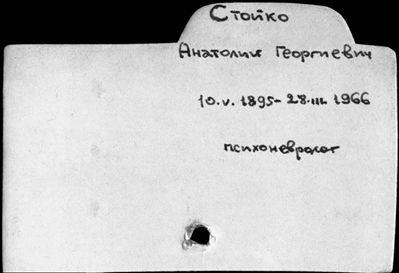 Стойко
Анатолий Георгиевич
10.V.1895-28.III.1966
психоневролог